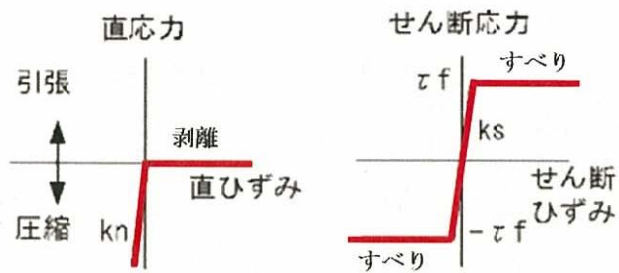 直応力
引張
剥離
直ひずみ
圧縮
kn
せん断応力
すべり
τf
ks
せん断
ひずみ
-τf
すべり